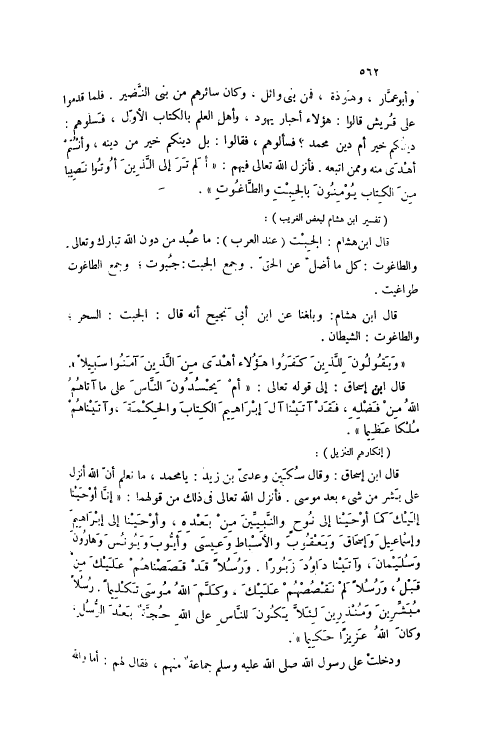 ٥٦٢
وأبو عمَّار ، وهَوْذة ، فمن بنى وائل ، وكان سائرهم من بنى النَّضير . فلما قدموا
على قُريش قالوا : هؤلاء أحبار يهود ، وأهل العلم بالكتاب الأوّل ، فسلوهم :
دينُكم خير أم دين محمد ؟ فسألوهم ، فقالوا : بل دينكم خير من دينه ، وأنْتُمْ
أهْدَى منه وممن اتبعه . فأنزل الله تعالى فيهم : « أَلَم تَرَ إلى الَّذِينَ أُوتُوا نَصِيبا
مِنَ الكِتابِ يُؤْمِنُونَ بالجِبْتِ والطَّاغُوتِ » .
( تفسير ابن هشام لبعض الغريب ) :
قال ابن هشام : الجِبْت ( عند العرب ) : ما عُبد من دون الله تبارك وتعالى .
والطاغوت : كل ما أضلّ عن الحقّ . وجمع الجبت : جُبوت ؛ وجمع الطاغوت
طواغيت .
قال ابن هشام : وبلغنا عن ابن أبى نَجيح أنه قال : الجبت : السحر ؛
والطاغوت : الشيطان .
« وَيَقُولُونَ لِلَّذِينَ كَفَرُوا هَؤُلاءِ أهْدَى مِنَ الَّذِينَ آمَنُوا سَبِيلاً » .
قال ابن إسحاق : إلى قوله تعالى : « أمْ يَحْسُدُونَ النَّاسَ على ما آتاهُمُ
اللهُ مِنْ فَضْلِهِ ، فَقَدْ آتَيْنا آلَ إبْرَاهِيمَ الكِتابَ والحِكْمَةَ ، وآتَيْناهُمْ
مُلْكا عَظِيما » .
( إنكارهم التنزيل ) :
قال ابن إسحاق : وقال سُكَين وعدىّ بن زيد : يا محمد ، ما نعلم أنّ الله أنزل
على بَشر من شىء بعد موسى . فأنزل الله تعالى فى ذلك من قولهما : « إنَّا أوْحَيْنا
إلَيْكَ كمَا أوْحَيْنا إلى نُوحٍ والنَّبِيِّينَ مِنْ بَعْدِهِ ، وأوْحَيْنا إلى إبْرَاهِيمَ
وإسماعِيلَ وإسحَاقَ وَيَعْقُوبَ والأسْباطِ وَعِيسَى وأيُّوبَ وَيُونُسَ وَهارُونَ
وَسُلَيْمانَ ، وآتَيْنا دَاوُدَ زَبُورًا . وَرُسُلاً قَدْ قَصَصْناهُمْ عَلَيْكَ مِنْ
قَبْلُ ، وَرُسُلاً لَمْ نَقْصُصْهُمْ عَلَيْكَ . وكَلَّمَ اللهُ مُوسَى تَكْلِيما . رُسُلاً
مُبَشِّرِينَ وَمُنْذِرِينَ لِئَلاَّ يَكُونَ للنَّاسِ على اللهِ حُجَّةٌ بَعْدَ الرُّسُلِ ،
وكانَ اللهُ عَزِيزًا حَكِيما » .
ودخلتْ على رسول الله صلى الله عليه وسلم جماعةٌ منهم ، فقال لهم : أما والله